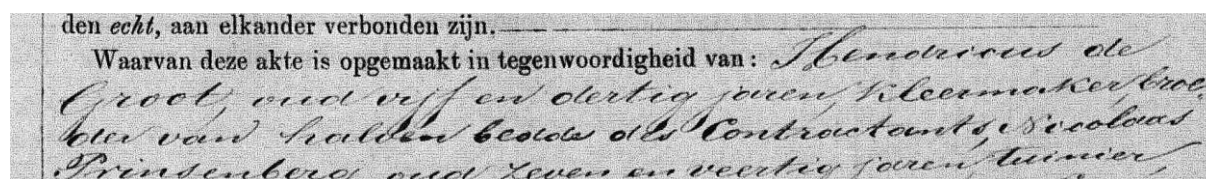 den echt, aan elkander verbonden zijn.
Waarvan deze akte is opgemaakt in tegenwoordigheid van: Hendricus de
Groot, oud vijf en dertig jaren, Kleermaker, broe-
der van halven bedde des Contractants, Nicolaas
Prinsenberg oud zeven en veertig jaren, tuinier,